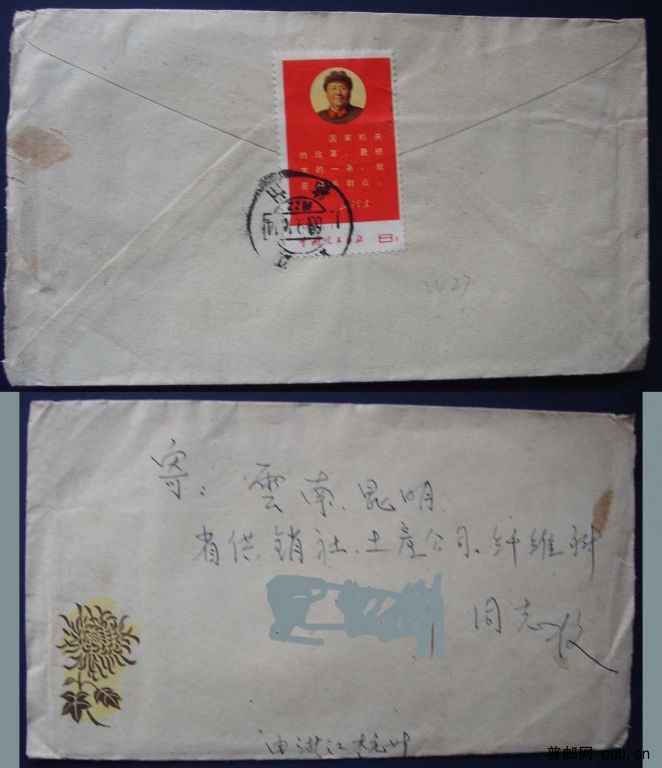 国家机关
的改革,最根
本的一条,就
是联系群众。
毛泽东
中国人民邮政 8分
W27
寄: 雲南、昆明
省供销社、土產公司、纤维科
同志收
由浙江杭州
普邮网 pub.cn